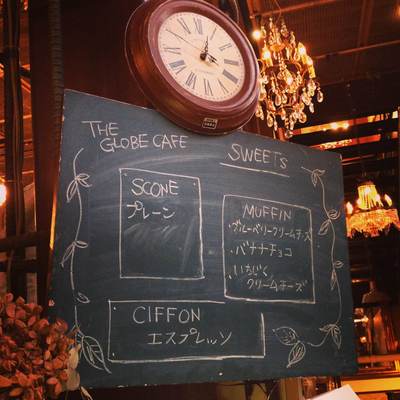 THE
GLOBE CAFE
SWEETS
SCONE
プレーン
MUFFIN
ブルーベリークリームチーズ
バナナチョコ
いちじく
クリームチーズ
CIFFON
エスプレッソ